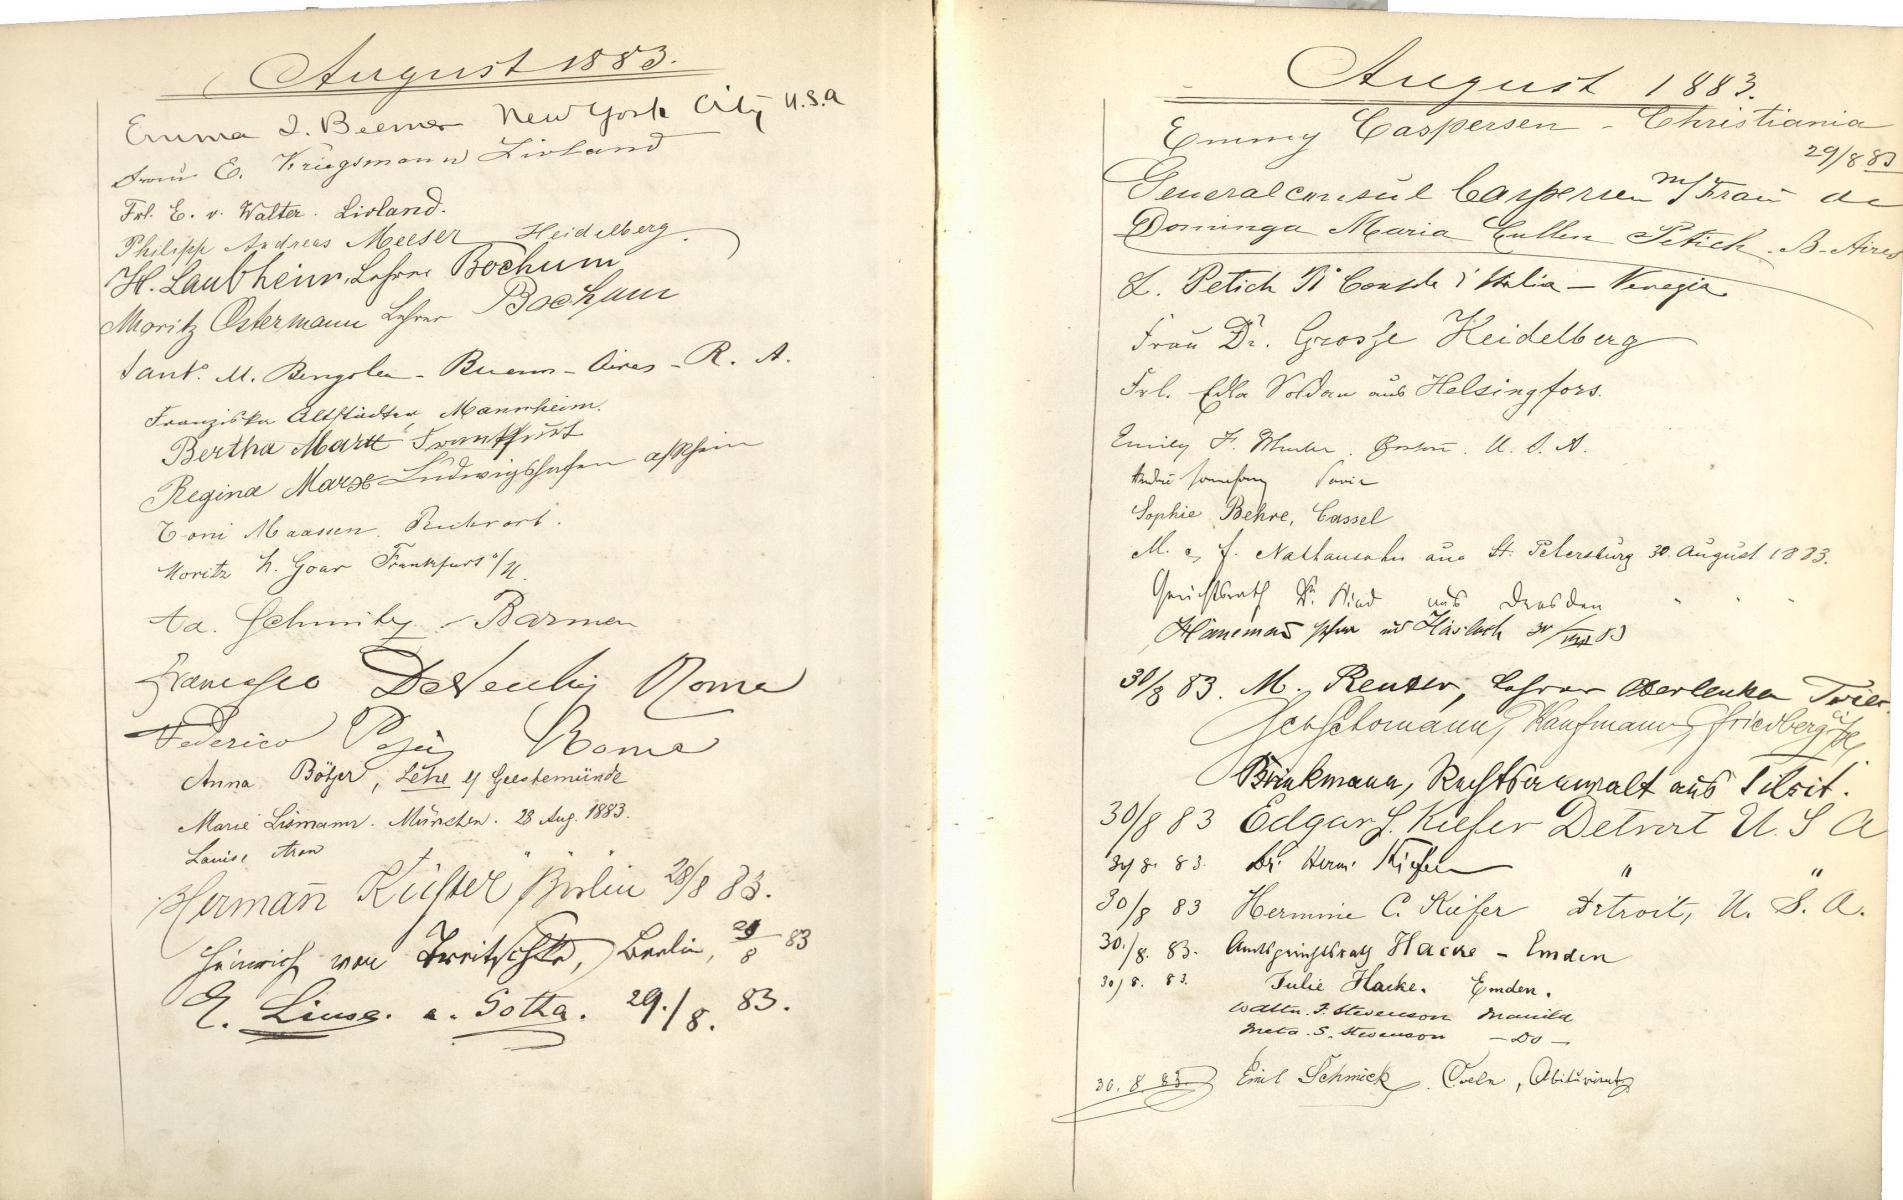 August 1883.
Emma J. Beemer New York City U.S.A
Frau E. Kriegsmann Livland
Frl. E. v. Walter. Livland.
Philipp Andreas Meeser Heidelberg.
H. Laubheim, Lehrer Bochum
Moritz Ostermann Lehrer Bochum
Santo. M. Bengolea - Buenos - Aires - R. A.
Franziska Altstädter Mannheim.
Bertha Marx Frankfurt
Regina Marx Ludwigshafen a/Rhein
Toni Maassen. Ruhrort.
Moritz h. Goar Frankfurt a/M.
Schmitz - Barmen
Francesco Roma
Federico Roma
Anna Bötjer, Lehe b/ Geestemünde
Marie Lismann. München. 28 Aug. 1883.
Louise Aron " " "
Hermann Küster Berlin 28/8 83.
Heinrich von Treitschke, Berlin, 29/8 83
E. Linse. a. Gotha. 29./8. 83.
August 1883.
Emmy Caspersen - Christiania
29/8 83
Generalconsul Caspersen m/Frau de
Dominga Maria Cullen Petich. B-Aires
L. Petich Rº Console d'Italia - Venezia
Frau Dr. Grosse Heidelberg
Frl. Edla Soldan aus Helsingfors.
Emily F. Boston. U. S. A.
André Paris
Sophie Behre, Cassel
M. & J. Nathansohn aus St. Petersburg 30. August 1883.
Gerichtsrath Dr. aus Dresden " " "
aus Haslach 30/VIII 83
30/8 83. M. Reuter, Lehrer Trier.
Kaufmann, Friedberg i/H
Brinkmann, Rechtsanwalt aus Tilsit.
30/8 83 Edgar S. Kiefer Detroit U. S A
30/8. 83. Dr. Herm. Kiefer " "
30/8 83 Hermine C. Kiefer Detroit, U. S. A.
30./8. 83. Amtsgerichtsrath Hacke - Emden
30/8. 83. Julie Hacke. Emden.
Walter. F. Stevenson Manila
Meta. S. Stevenson - Do -
30. 8 83. Emil Schmick. Coeln, Abiturient